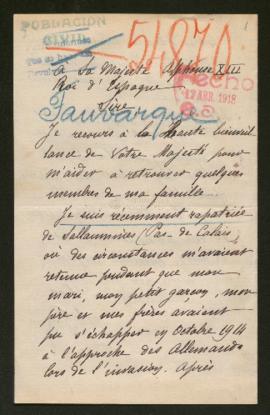 POBLACION
CIVIL
54870
A Sa Majesté Alphonse XIII
Roi d'Espagne
Hecho
17 ABR. 1918
Sire
Sauvarque
Je recours à la Haute bienveil
lance de Votre Majesté pour
m'aider à retrouver quelques
membres de ma famille.
Je suis récemment rapatriée
de Sallaumines (Pas-de-Calais)
où des circonstances m'avaient
retenue pendant que mon
mari, mon petit garçon, mon
père et mes frères avaient
pu s'échapper en Octobre 1914
à l'approche des Allemands
lors de l'invasion. Après